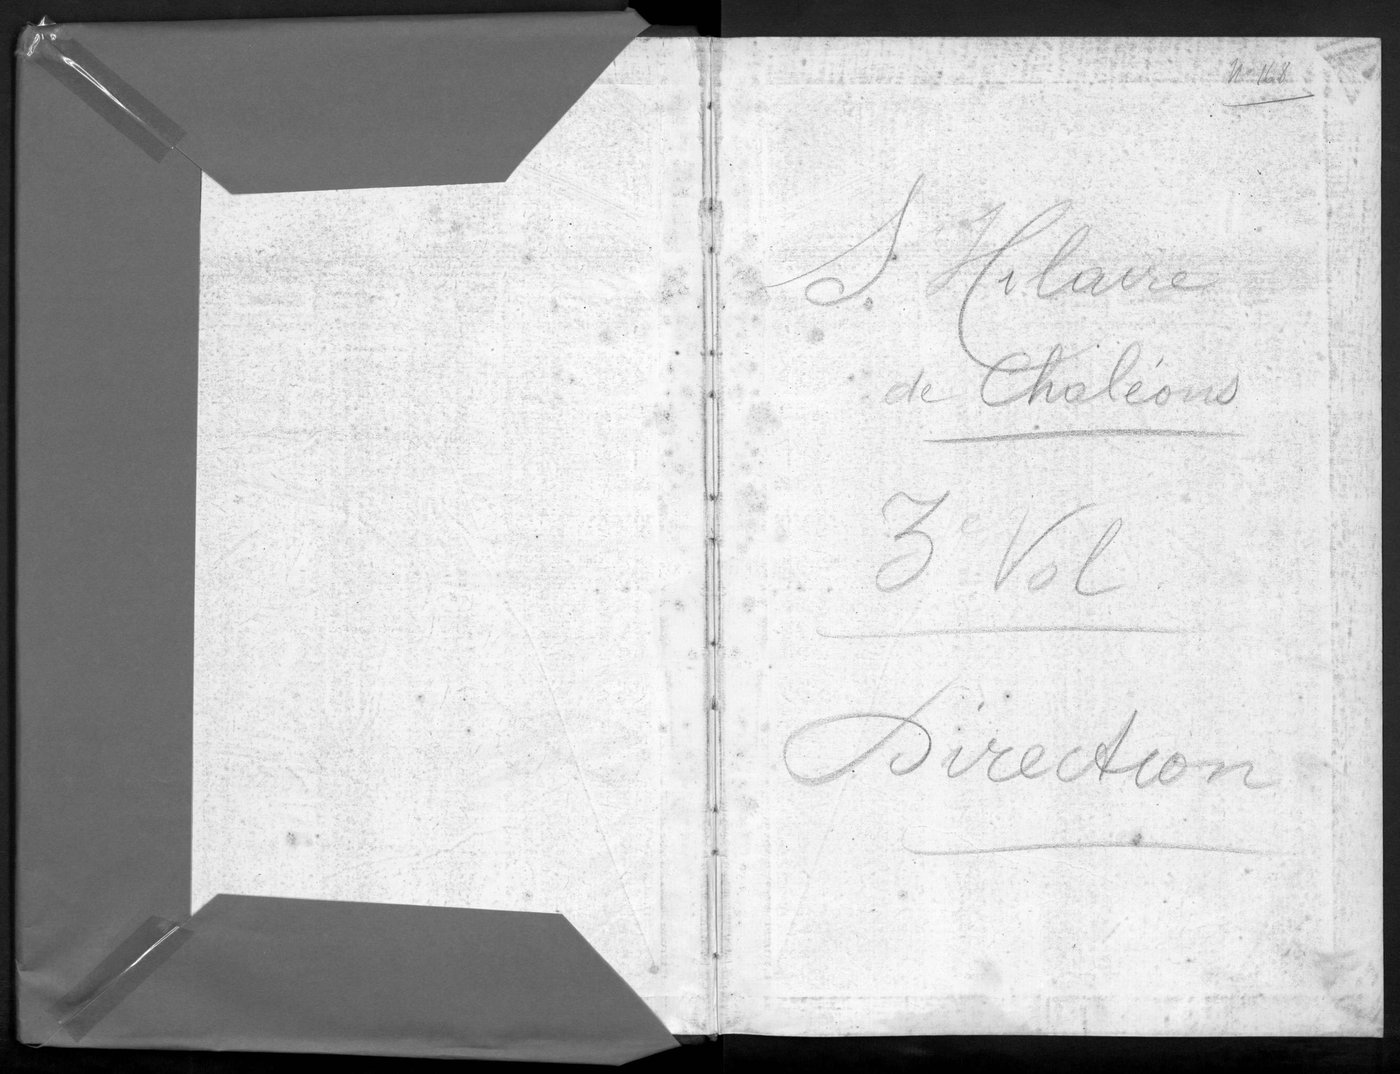 N 168
S. Hilaire
de Chaléons
3e Vol
Direction